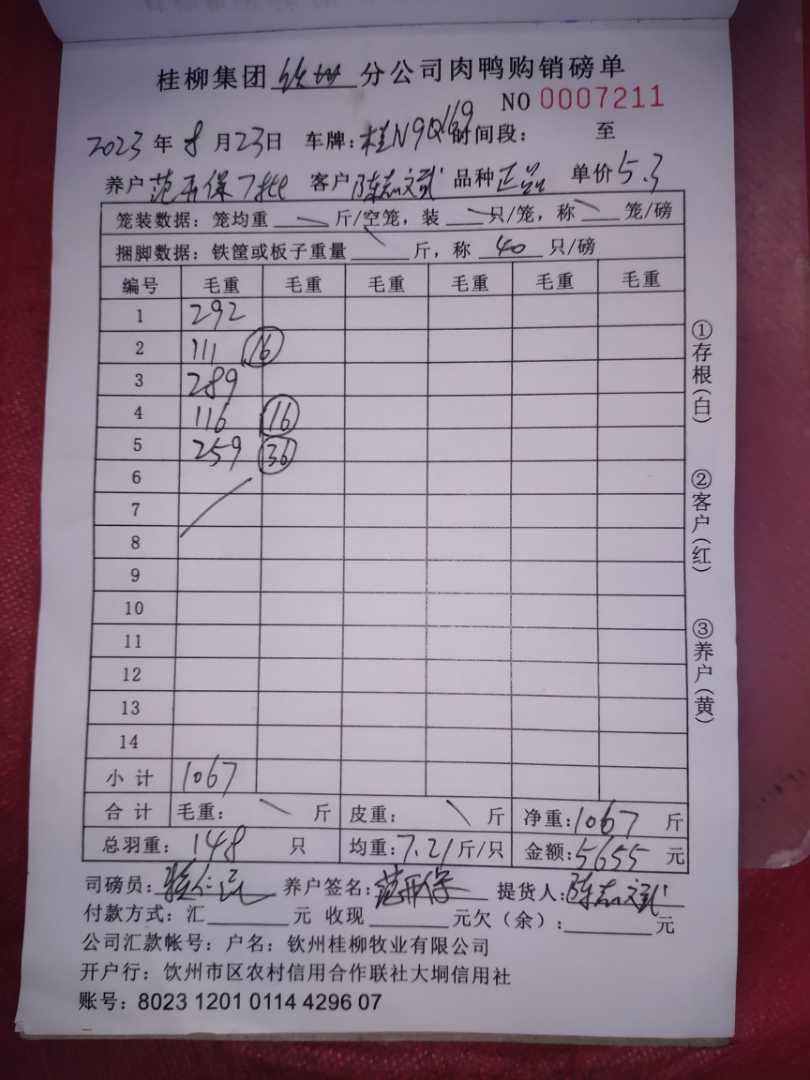 桂柳集团 钦州 分公司肉鸭购销磅单
NO 0007211
2023 年 8 月 23 日 车牌: 桂N9Q169 时间段: 至
养户 范开保7批 客户 陈志斌 品种 正品 单价 5.3
笼装数据: 笼均重 斤/空笼, 装 只/笼, 称 笼/磅
捆脚数据: 铁筐或板子重量 斤, 称 40 只/磅
编号 毛重 毛重 毛重 毛重 毛重 毛重
1 292
2 111 16
3 289
4 116 16
5 259 36
6
7
8
9
10
11
12
13
14
小计 1067
合计 毛重: 斤 皮重: 斤 净重: 1067 斤
总羽重: 148 只 均重: 7.21 斤/只 金额: 5655 元
司磅员: 养户签名: 范开保 提货人: 陈志斌
付款方式: 汇 元 收现 元欠(余): 元
公司汇款帐号: 户名: 钦州桂柳牧业有限公司
开户行: 钦州市区农村信用合作联社大垌信用社
账号: 8023 1201 0114 4296 07
①存根(白)
②客户(红)
③养户(黄)